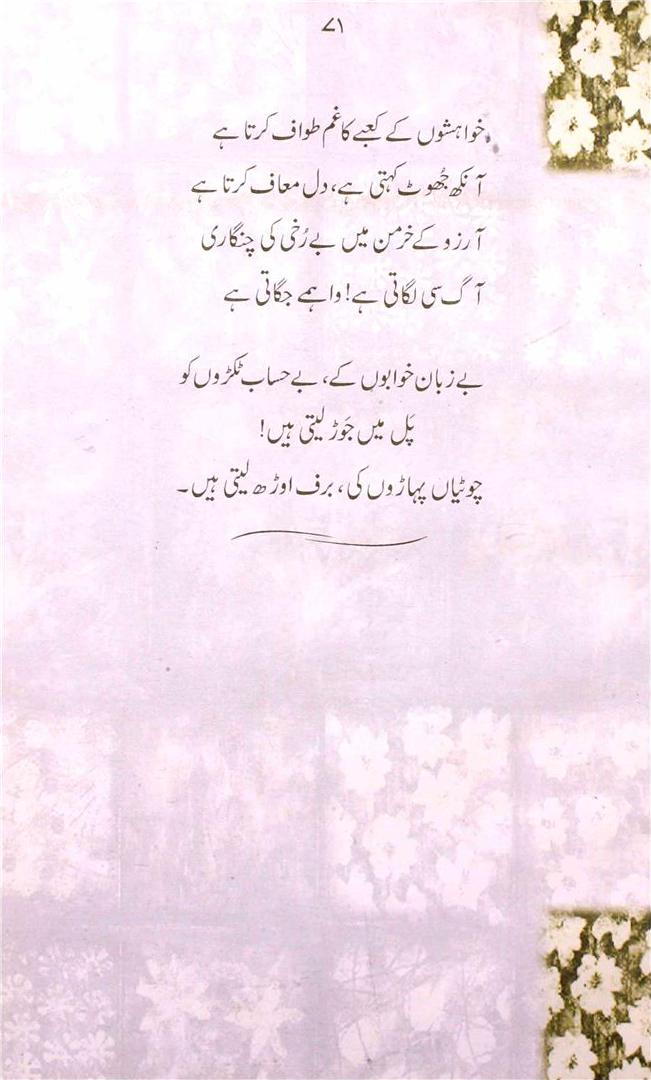 ۷۱
خواہشوں کے کعبے کا غم طواف کرتا ہے
آنکھ جُھوٹ کہتی ہے، دل معاف کرتا ہے
آرزو کے خرمن میں بے رُخی کی چنگاری
آگ سی لگاتی ہے! واہمے جگاتی ہے
بے زبان خوابوں کے، بے حساب ٹکڑوں کو
پَل میں جَوڑ لیتی ہیں!
چوٹیاں پہاڑوں کی، برف اوڑھ لیتی ہیں۔